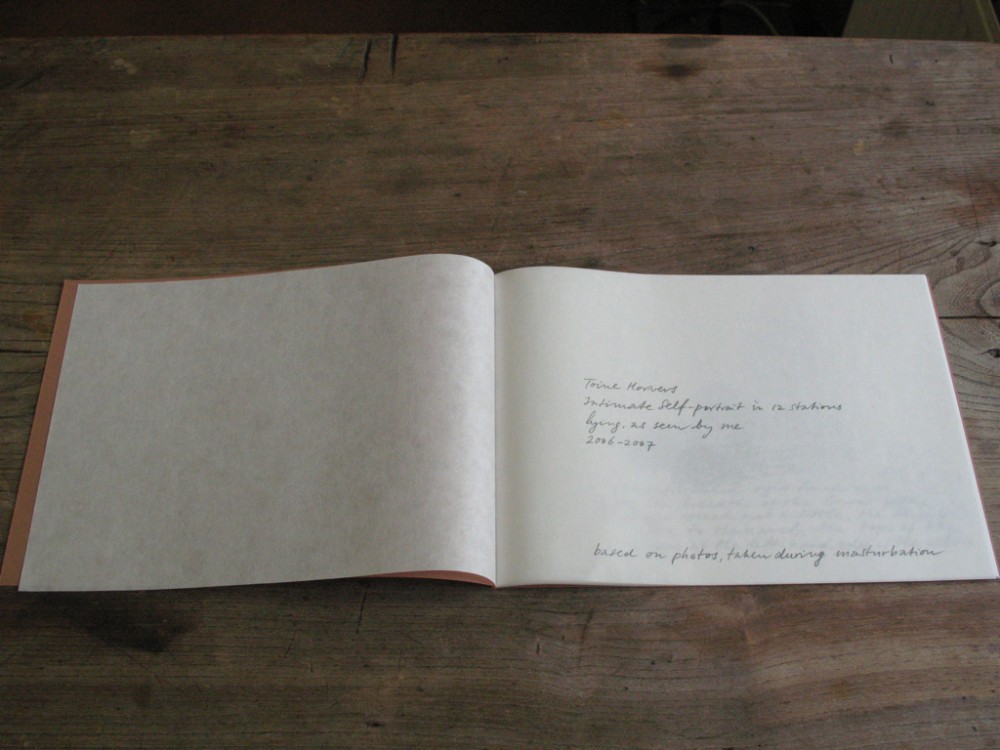 Toine Horvers
Intimate Self-portrait in 12 stations
lying, as seen by me
2006-2007
based on photos, taken during masturbation